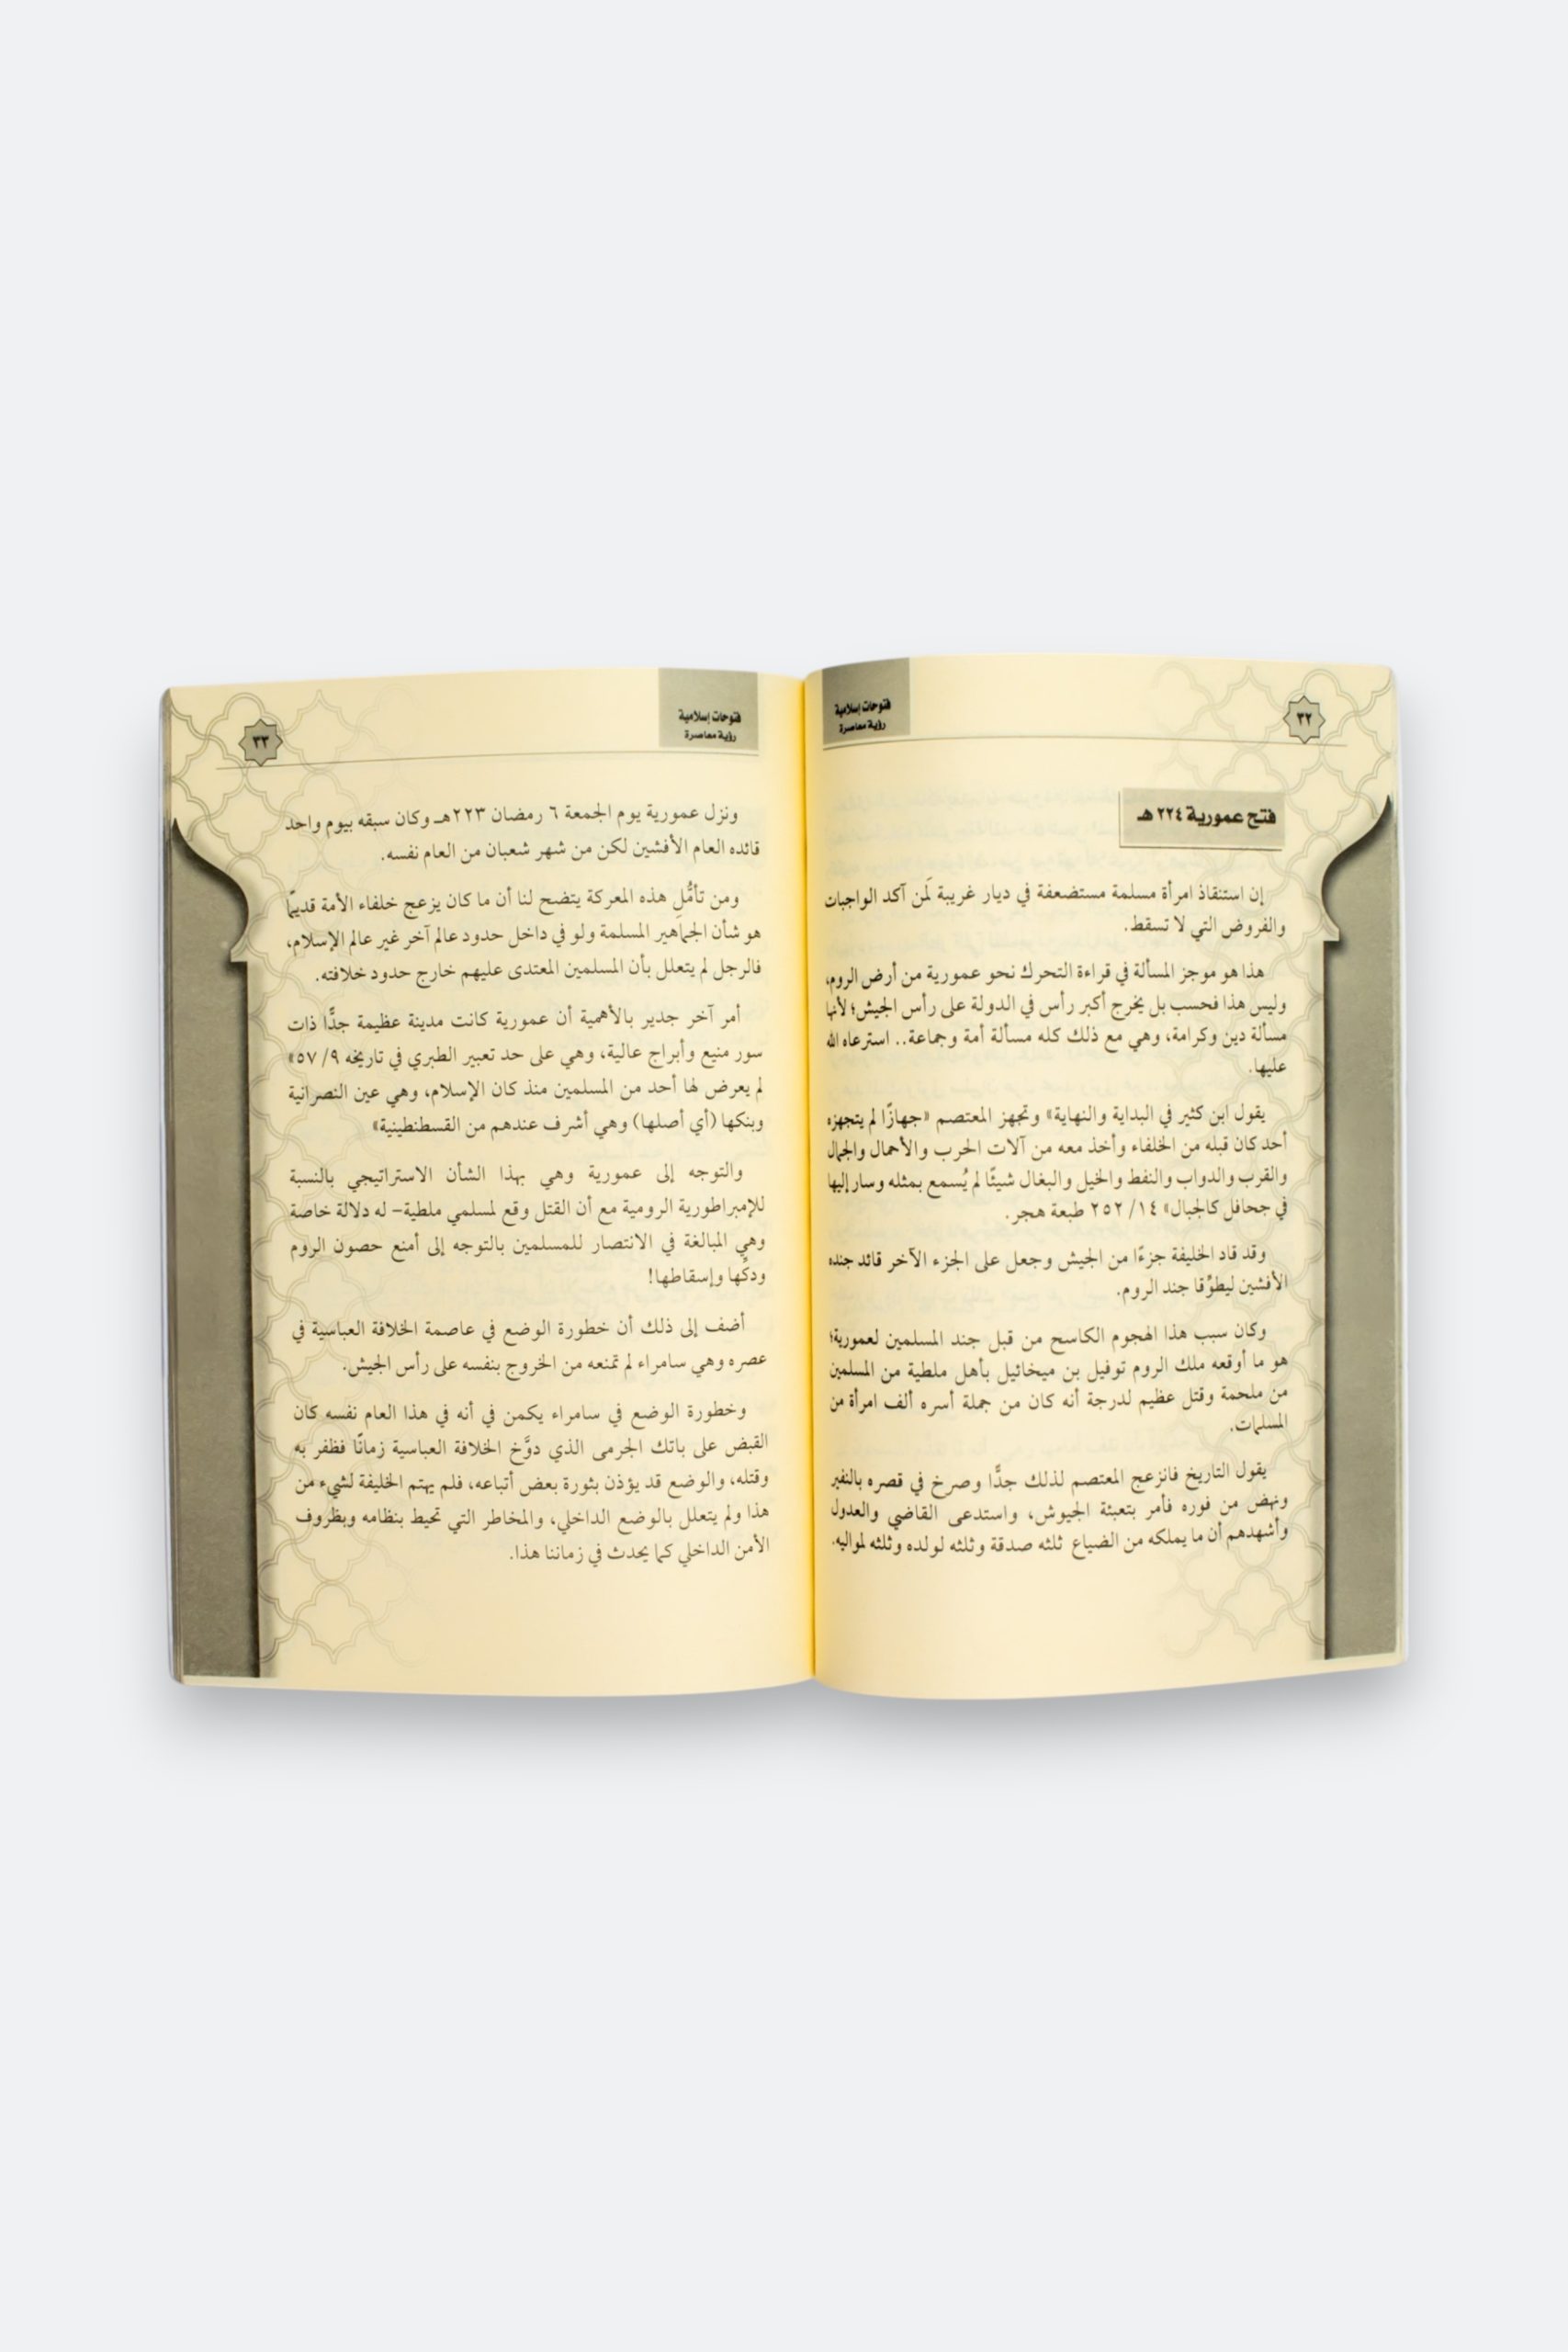 ٣٢
فتوحات إسلامية
رؤية معاصرة
فتح عمورية ٢٢٤ هـ
إن استنقاذ امرأة مسلمة مستضعفة في ديار غريبة لَمن آكد الواجبات
والفروض التي لا تسقط.
هذا هو موجز المسألة في قراءة التحرك نحو عمورية من أرض الروم،
وليس هذا فحسب بل يخرج أكبر رأس في الدولة على رأس الجيش؛ لأنها
مسألة دين وكرامة، وهي مع ذلك كله مسألة أمة وجماعة.. استرعاه الله
عليها.
يقول ابن كثير في البداية والنهاية» وتجهز المعتصم «جهازًا لم يتجهزه
أحد كان قبله من الخلفاء وأخذ معه من آلات الحرب والأحمال والجمال
والقرب والدواب والنفط والخيل والبغال شيئًا لم يُسمع بمثله وسار إليها
في جحافل كالجبال» ١٤/ ٢٥٢ طبعة هجر.
وقد قاد الخليفة جزءًا من الجيش وجعل على الجزء الآخر قائد جنده
الأفشين ليطوِّقا جند الروم.
وكان سبب هذا الهجوم الكاسح من قبل جند المسلمين لعمورية؛
هو ما أوقعه ملك الروم توفيل بن ميخائيل بأهل ملطية من المسلمين
من ملحمة وقتل عظيم لدرجة أنه كان من جملة أسره ألف امرأة من
المسلمات.
يقول التاريخ فانزعج المعتصم لذلك جدًّا وصرخ في قصره بالنفير
ونهض من فوره فأمر بتعبئة الجيوش، واستدعى القاضي والعدول
وأشهدهم أن ما يملكه من الضياع ثلثه صدقة وثلثه لولده وثلثه لمواليه.
فتوحات إسلامية
رؤية معاصرة
٣٣
ونزل عمورية يوم الجمعة ٦ رمضان ٢٢٣هـ وكان سبقه بيوم واحد
قائده العام الأفشين لكن من شهر شعبان من العام نفسه.
ومن تأمُّلِ هذه المعركة يتضح لنا أن ما كان يزعج خلفاء الأمة قديمًا
هو شأن الجماهير المسلمة ولو في داخل حدود عالم آخر غير عالم الإسلام،
فالرجل لم يتعلل بأن المسلمين المعتدى عليهم خارج حدود خلافته.
أمر آخر جدير بالأهمية أن عمورية كانت مدينة عظيمة جدًّا ذات
سور منيع وأبراج عالية، وهي على حد تعبير الطبري في تاريخه ٩/ ٥٧»
لم يعرض لها أحد من المسلمين منذ كان الإسلام، وهي عين النصرانية
وبنكها (أي أصلها) وهي أشرف عندهم من القسطنطينية»
والتوجه إلى عمورية وهي بهذا الشأن الاستراتيجي بالنسبة
للإمبراطورية الرومية مع أن القتل وقع لمسلمي ملطية– له دلالة خاصة
وهي المبالغة في الانتصار للمسلمين بالتوجه إلى أمنع حصون الروم
ودكِّها وإسقاطها!
أضف إلى ذلك أن خطورة الوضع في عاصمة الخلافة العباسية في
عصره وهي سامراء لم تمنعه من الخروج بنفسه على رأس الجيش.
وخطورة الوضع في سامراء يكمن في أنه في هذا العام نفسه كان
القبض على باتك الجرمى الذي دوَّخ الخلافة العباسية زمانًا فظفر به
وقتله، والوضع قد يؤذن بثورة بعض أتباعه، فلم يهتم الخليفة لشيء من
هذا ولم يتعلل بالوضع الداخلي، والمخاطر التي تحيط بنظامه وبظروف
الأمن الداخلي كما يحدث في زماننا هذا.